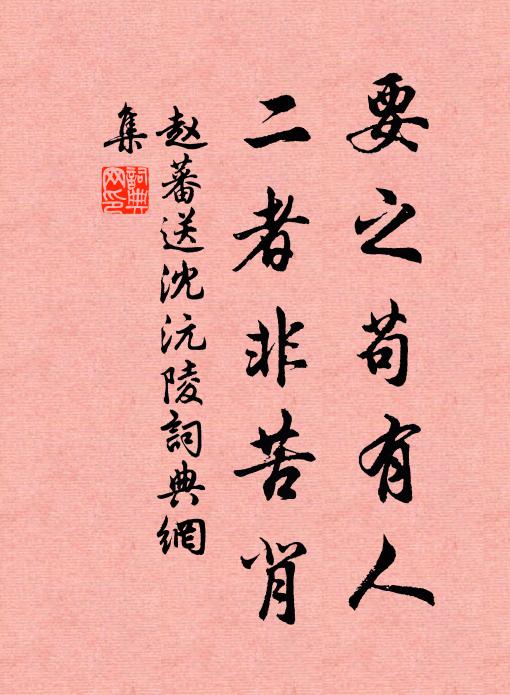 要之苟有人
二者非苦背
赵蕃送沈沅陵詞典網
集
詞典網印